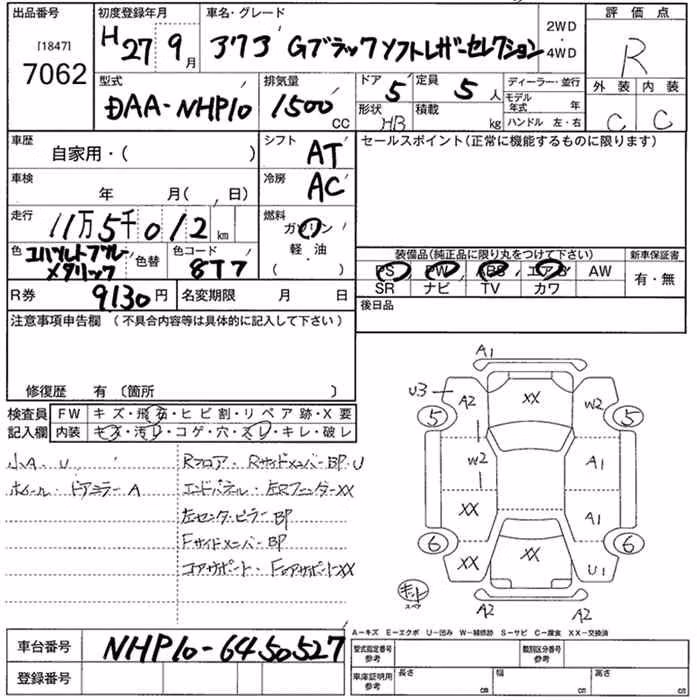 出品番号
[1847]
7062
初度登録年月
H27 9月
車名・グレード
アクア Gブラックソフトレザーセレクション
2WD
・
4WD
評価点
R
型式
DAA-NHP10
排気量
1500 CC
ドア 5
定員 5 人
形状 HB
積載 kg
ディーラー・並行
モデル年式 年
ハンドル 左・右
外装 内装
C C
車歴
自家用・( )
シフト
AT
車検
年 月( 、日)
冷房
AC
走行
11万5千012 km
燃料
ガソリン
軽油
( )
色
コバルトブルー
メタリック
色替
色コード
8T7
R券 9130円
名変期限 月 日
セールスポイント(正常に機能するものに限ります)
装備品(純正品に限り丸をつけて下さい)
PS PW ABS エアB AW
SR ナビ TV カワ
新車保証書
有・無
後日品
注意事項申告欄(不具合内容等は具体的に記入して下さい)
修復歴 有〔箇所 〕
検査員 FW キズ・飛石・ヒビ割・リペア跡・X要
記入欄 内装 キズ・汚レ・コゲ・穴・スレ・キレ・破レ
小A、U
ホイール・ドアミラーA
Rフロア・RサイドメンバーBP・U
エンドパネル・左RフェンダーXX
左センターピラーBP
FサイドメンバーBP
コアサポート・FコアサポートXX
A1
U3 A2 XX W2
5 5
W2 A1
XX A1
6 6
XX XX U1
キット
スペア
A2 A2
A-キズ E-エクボ U-凹み W-補修跡 S-サビ C-腐食 XX-交換済
車台番号 NHP10-6450527
登録番号
型式指定番号
参考
類別区分番号
参考
車庫証明用
参考
長さ cm
幅 cm
高さ cm